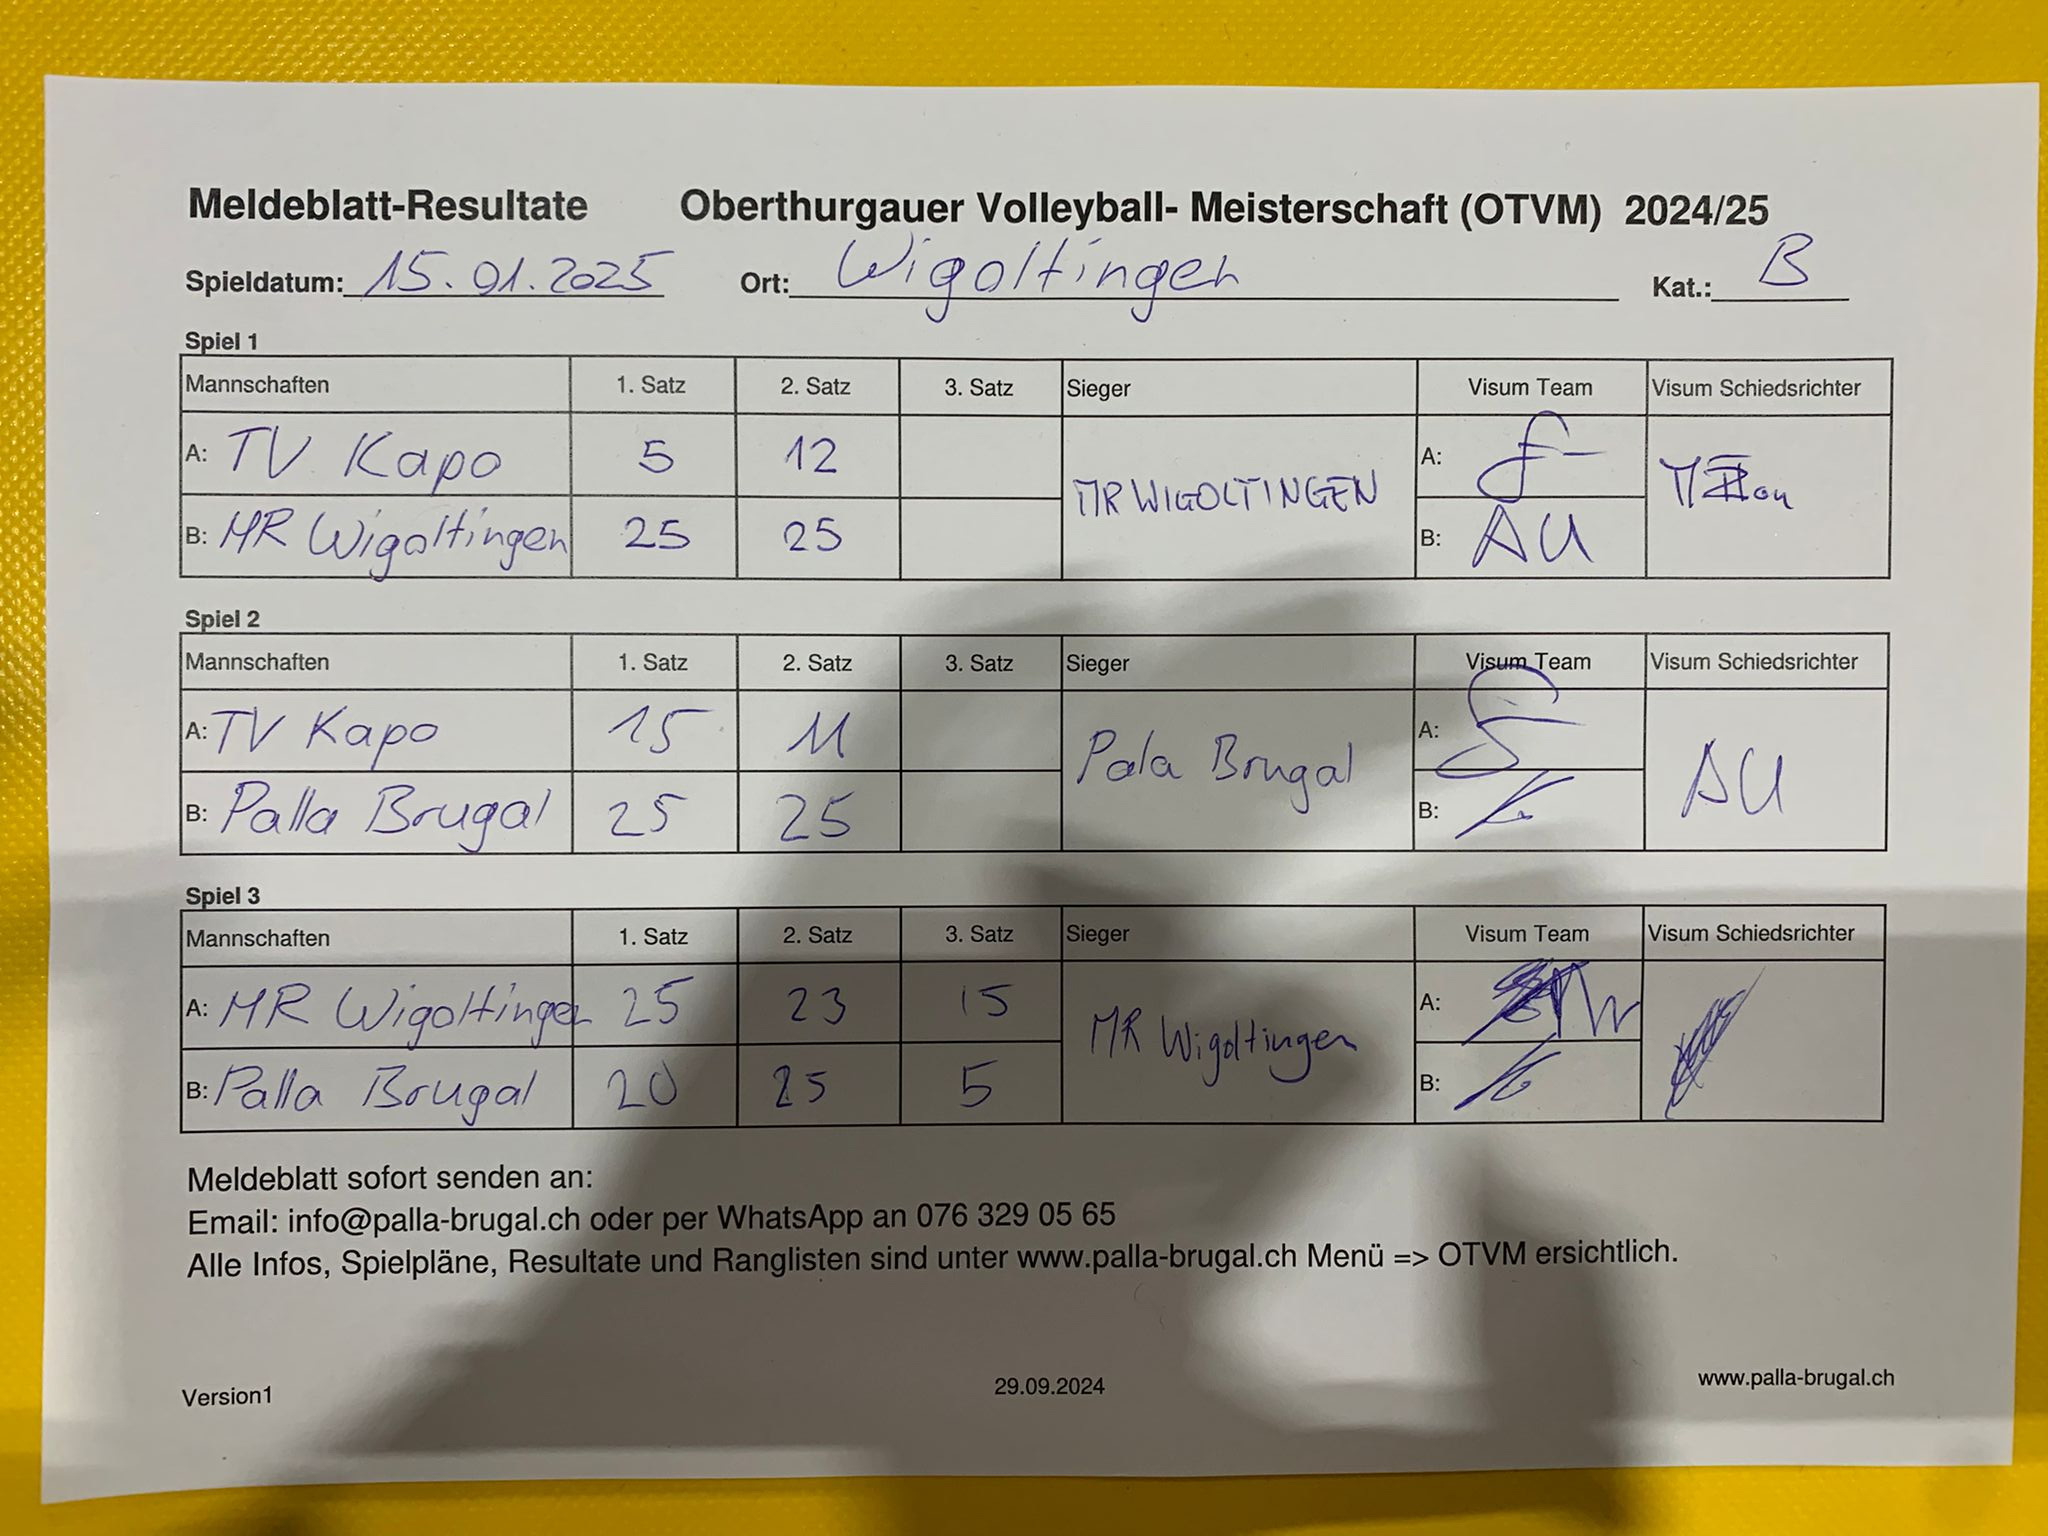 Meldeblatt-Resultate Oberthurgauer Volleyball- Meisterschaft (OTVM) 2024/25
Spieldatum: 15.01.2025 Ort: Wigoltingen Kat.: B
Spiel 1
Mannschaften 1. Satz 2. Satz 3. Satz Sieger Visum Team Visum Schiedsrichter
A: TV Kapo 5 12 MR WIGOLTINGEN A:
B: MR Wigoltingen 25 25 B: AU
Spiel 2
Mannschaften 1. Satz 2. Satz 3. Satz Sieger Visum Team Visum Schiedsrichter
A: TV Kapo 15 11 Pala Brugal A: AU
B: Palla Brugal 25 25 B:
Spiel 3
Mannschaften 1. Satz 2. Satz 3. Satz Sieger Visum Team Visum Schiedsrichter
A: MR Wigoltingen 25 23 15 MR Wigoltingen A:
B: Palla Brugal 20 25 5 B:
Meldeblatt sofort senden an:
Email: info@palla-brugal.ch oder per WhatsApp an 076 329 05 65
Alle Infos, Spielpläne, Resultate und Ranglisten sind unter www.palla-brugal.ch Menü => OTVM ersichtlich.
Version1 29.09.2024 www.palla-brugal.ch